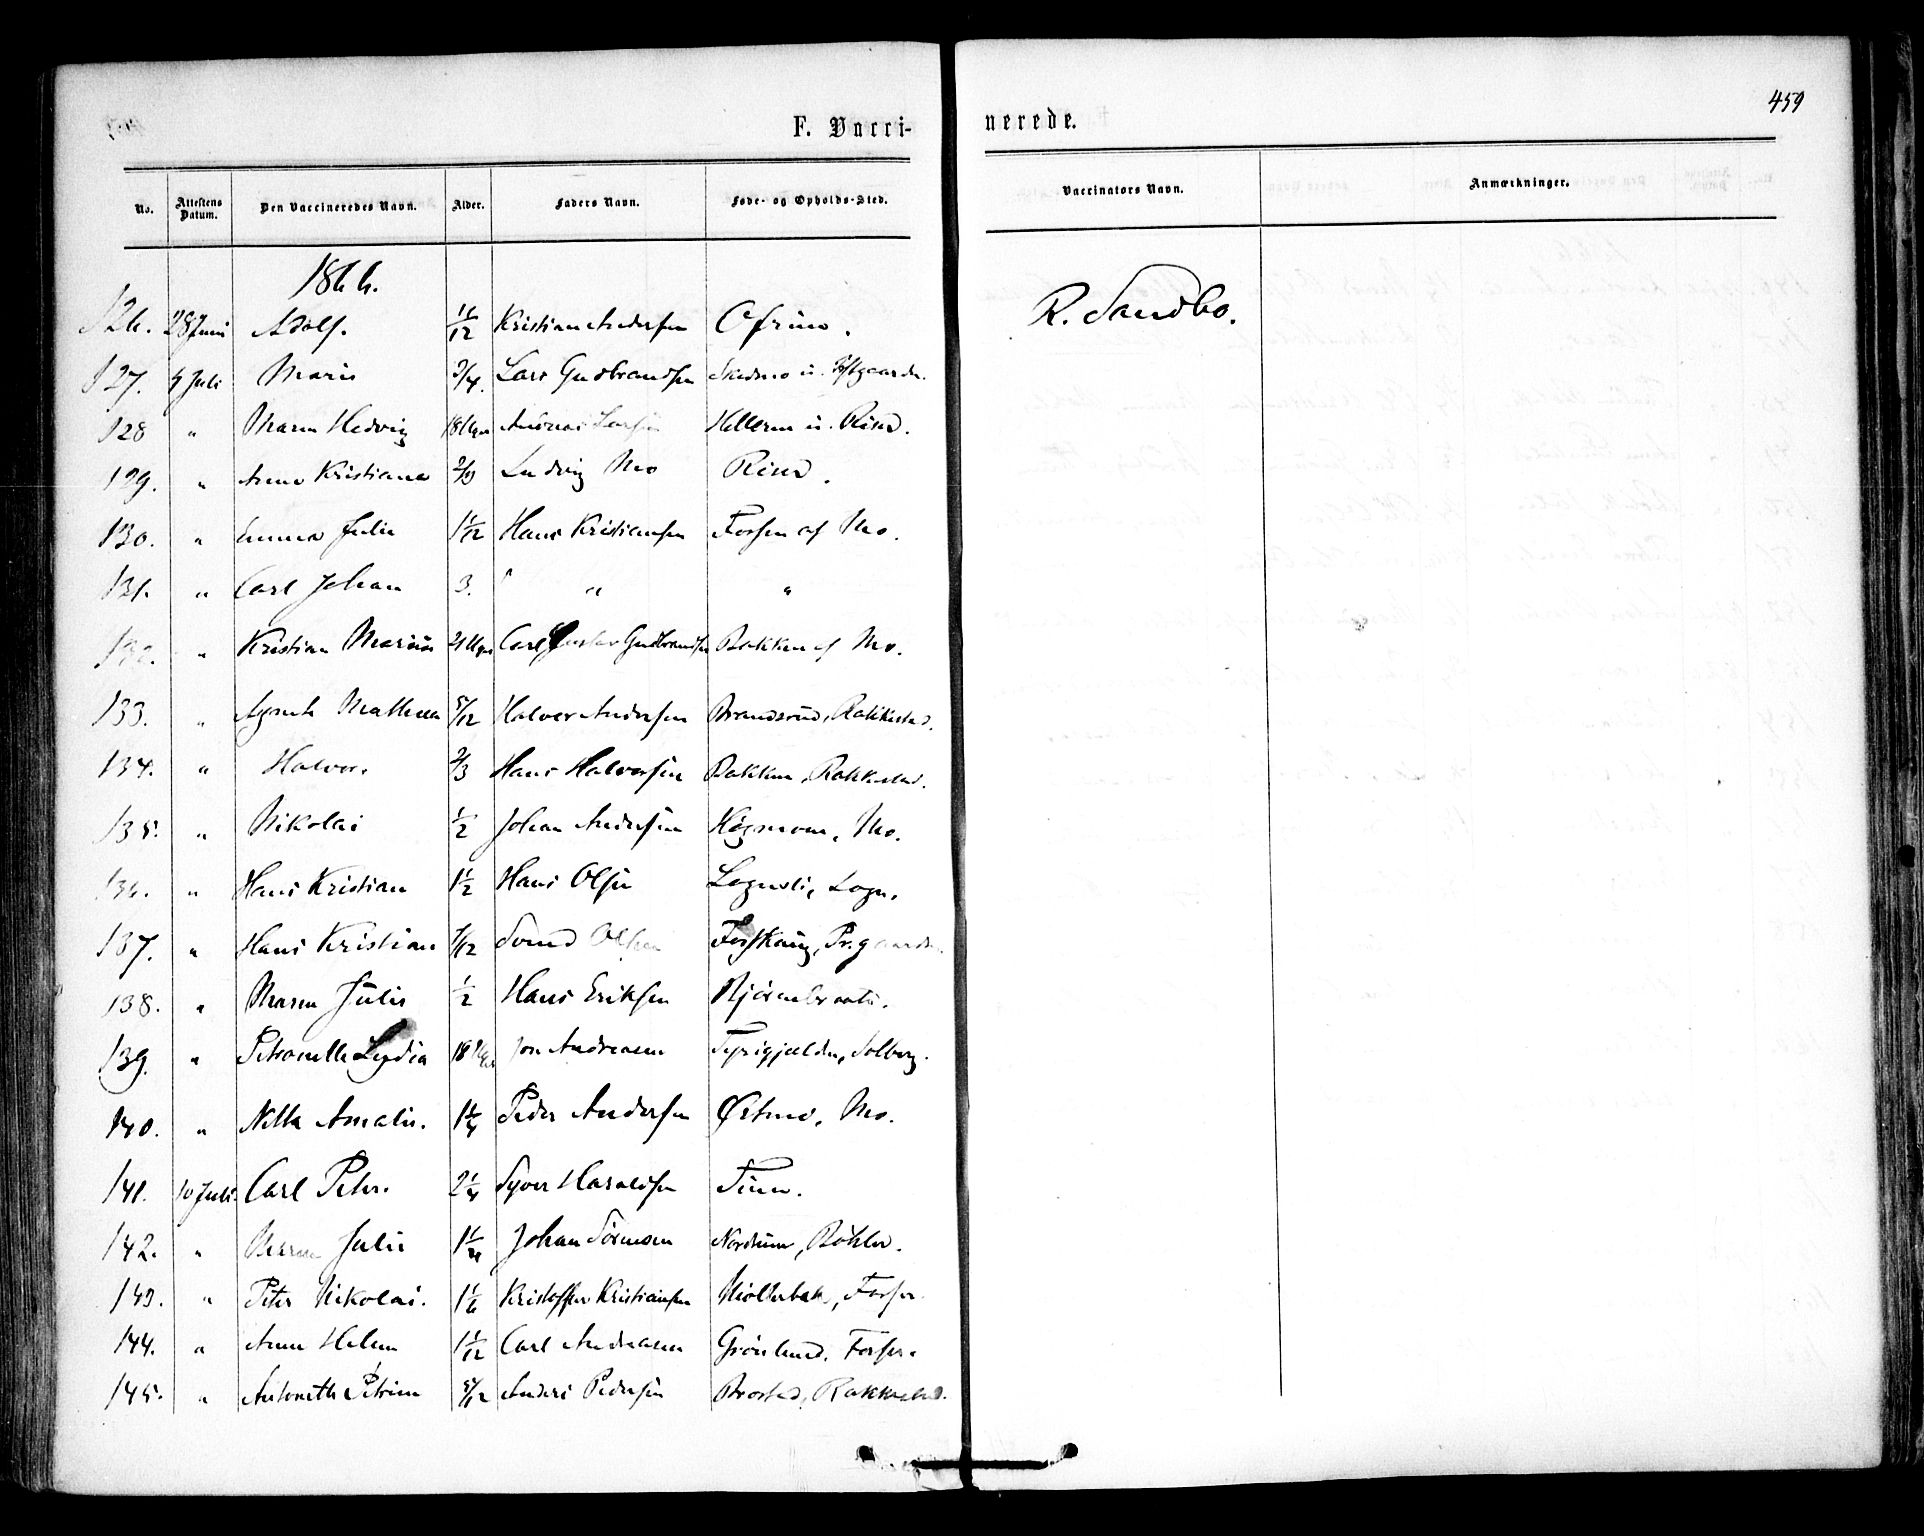 459
F. Vacci-
nerede.
No. Attestens Datum. Den Vaccineredes Navn. Alder. Faders Navn. Føde- og Opholds-Sted. Vaccinators Navn. Anmærkninger.
1866.
126. 28 Juni Adolf. 11/12 Kristian Andersen R. Sandbo.
127. 9 Juli Marie 3/4. Lars Gudbrandsen Skedsmo u.
128 " Maren Hedvig 18 Uger Andreas Larsen Helleren u. Risø.
129. " Anna Kristiane 2/3 Ludvig Mo Risø.
130. " Emma Julie 1 1/12 Hans Kristiansen Forsen af Mo.
131. " Carl Johan 3. " " "
132. " Kristian Marius 21 Uger Carl Gustav Gudbrandsen Bakken af Mo.
133. " Agnete Mathea 5/12 Halvor Andersen Brandsrud, Rakkestad.
134. " Halvor. 2/3 Hans Halvorsen Bakken, Rakkestad.
135. " Nikolai 1/2 Johan Andersen Høgmoen, Mo.
136. " Hans Kristian 1 1/2 Hans Olsen Lognsli, Logn.
137. " Hans Kristian 7/12 Svend Olsen Pr.gaarden
138. " Maren Julie 1/2 Hans Eriksen
139. " Petronelle Lydia 18 Uger Jon Andreasen Solberg.
140. " Nella Amalie. 1 1/4 Peder Andersen Østmo, Mo.
141. 10 Juli. Carl Peter. 2 1/4 Syver Haraldsen
142. " Maren Julie 1 1/4 Johan Sørensen Nordstuen, Bøhler.
143. " Peter Nikolai. 1 1/6 Kristoffer Kristiansen Forsen.
144. " Anne Helene 1 1/12 Carl Andreasen Grønlund, Forsen.
145. " Antonette Petrine 5/12 Anders Pedersen Brosted, Rakkestad.